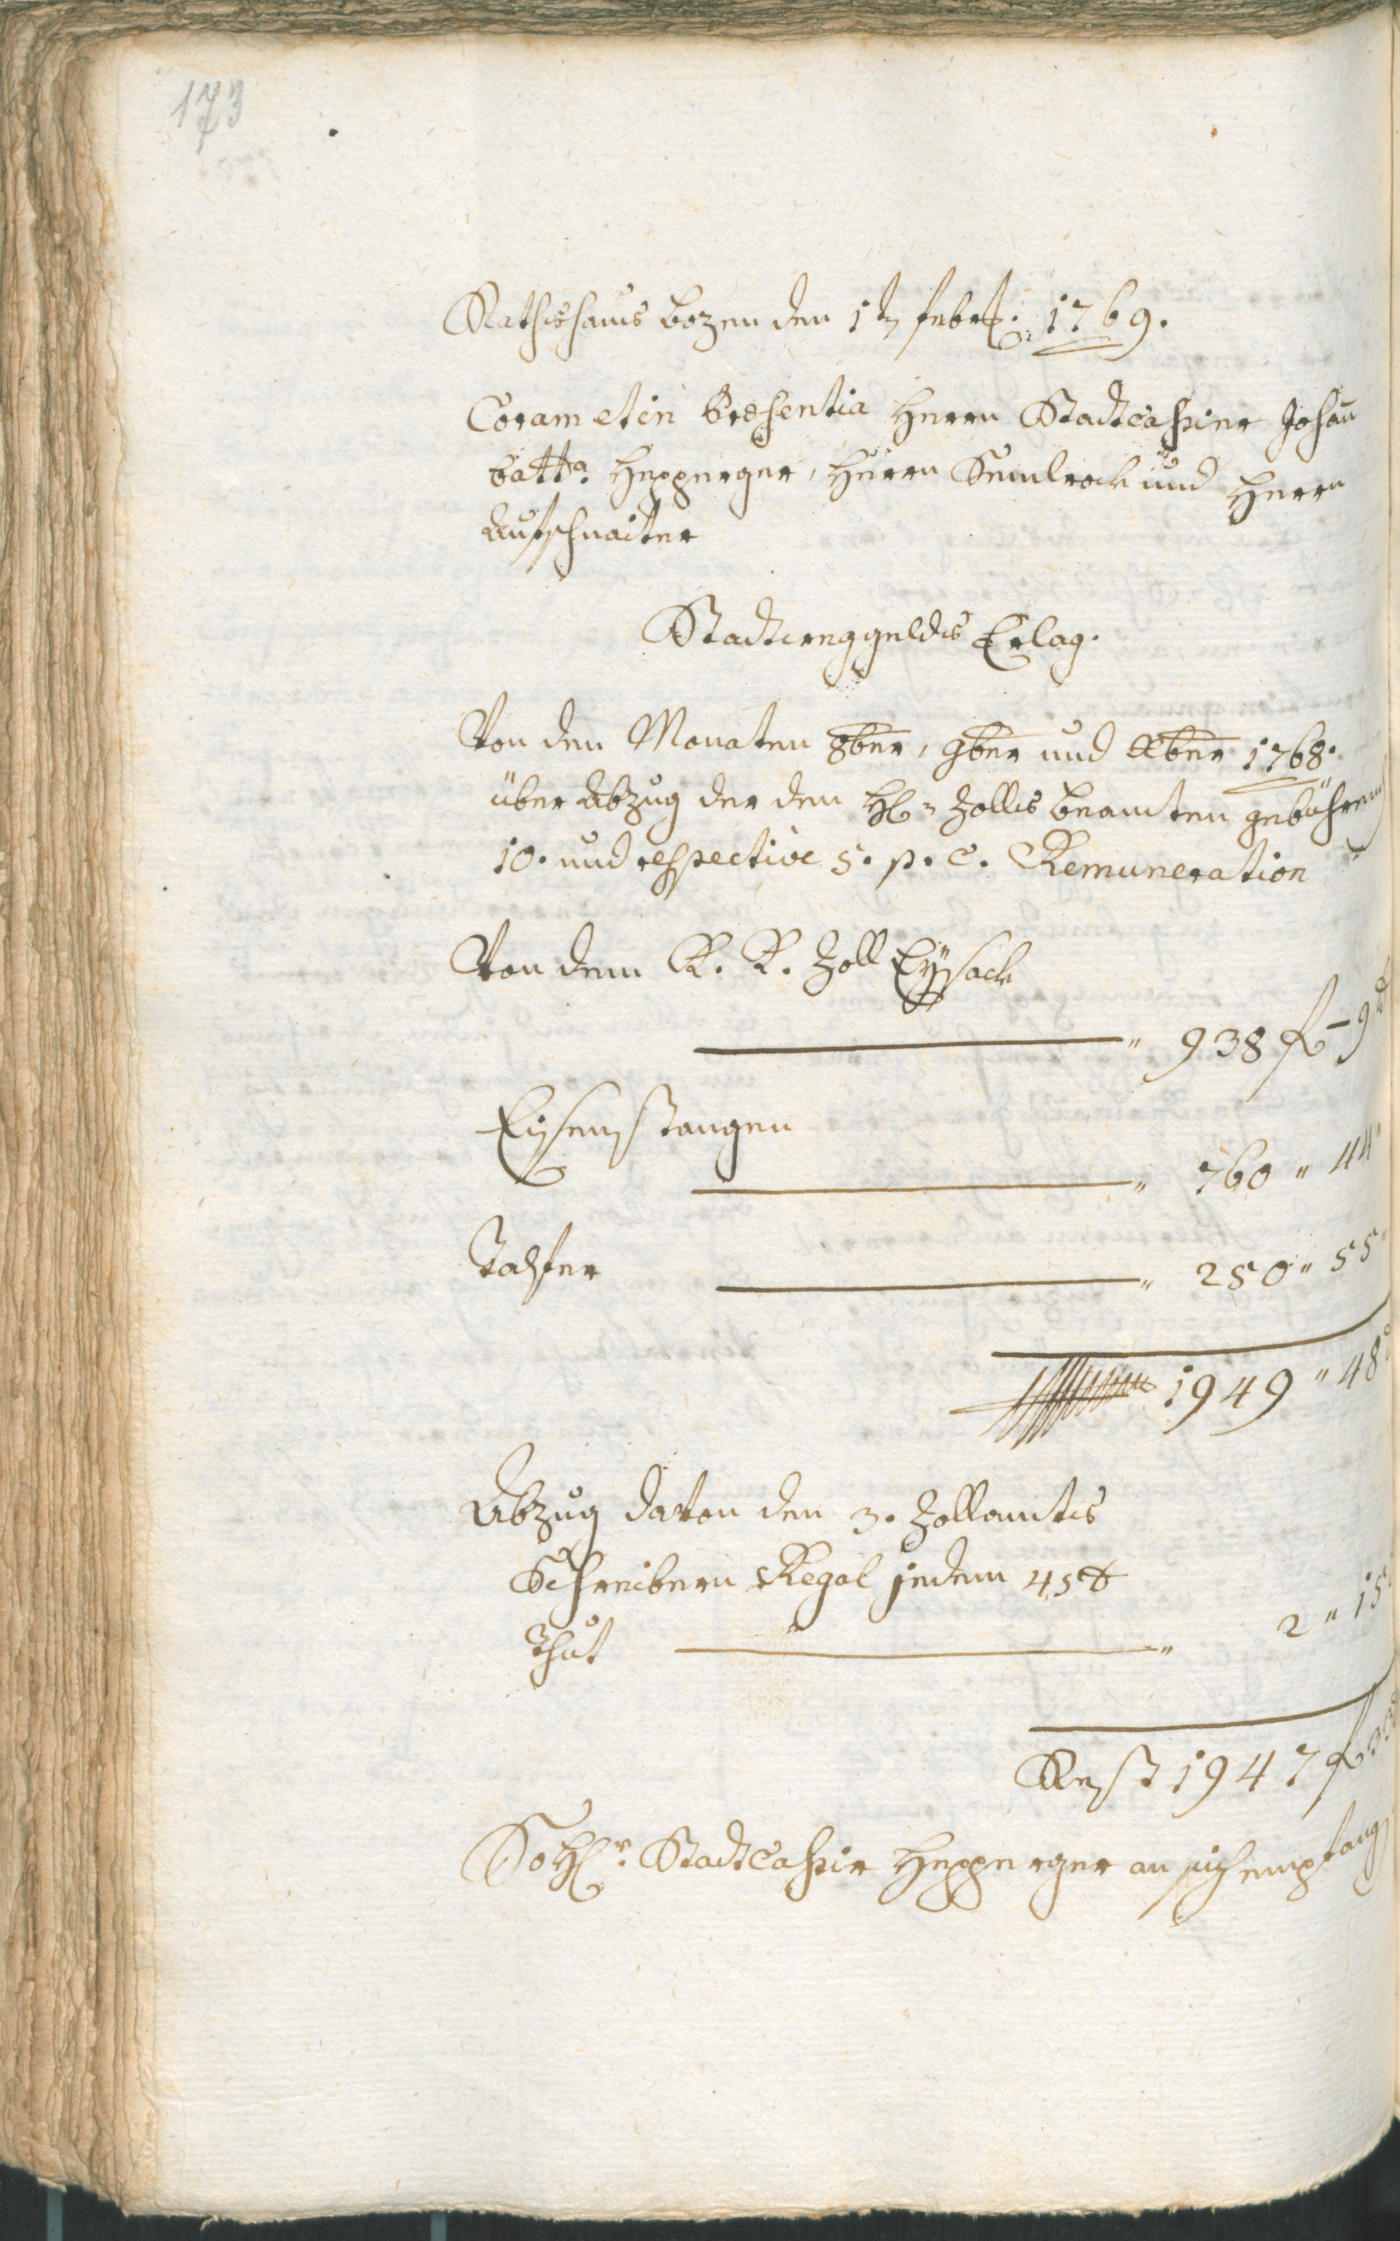 173
Rathshaus Bozen den 1tn febr: 1769.
Coram et in Præsentia Herrn Stadtcassier Johan
Batta: Hepperger, Herrn Semlrock und Herrn
Aufschnaiter
Stadtweggelds Erlag.
Von den Monaten 8ber, 9ber und Xber 1768.
über Abzug der den H: Zolls Beamten gebühren
10. und respective 5. p. c. Remuneration
Von dem K. K. Zoll Eÿsack
" 938 f – 9 x
Eisenstangen
" 760 " 44
Talfer
" 250 " 55
1949 " 48
Abzug davon den 3. Zollamts
Schreibern Regal jedem 45 x
Thut " 2 " 15
Rest 1947 f 33
So Hr: Stadtcassier Hepperger an sich empfang